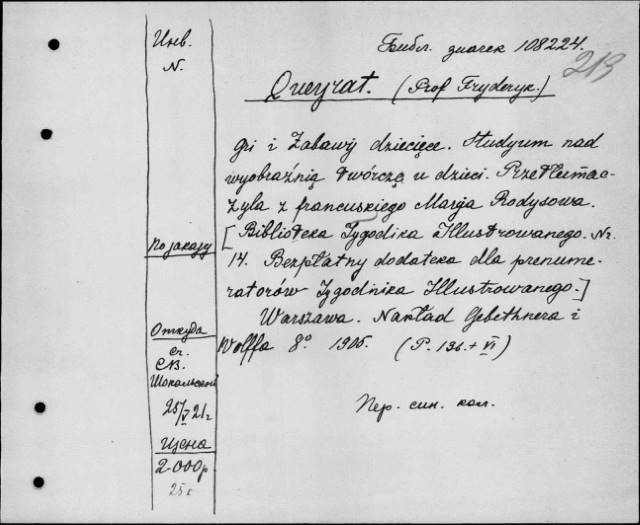 Инв.
N.
Библ. значек 108224.
213
Queyrat. (Prof Fryderyk.)
Gri i Zabawy dziecięce. Studyum nad
wyobraźnią twórczą u dzieci. Przetłuma-
żyla z francuskiego Marja Rodysowa.
[Biblioteka Tygodika Illustrowanego. Nr.
14. Bezpłatny dodateka dla prenume-
ratorów Tygodnika Illustrowanego.]
Warszawa. Nakład Gebethnera i
Wolffa 8° 1905. (P. 136. + VI)
По заказу
Откуда
СВ.
Шокальский
25/V 21г
Цена
2.000р
25 г
Пер. син. кол.